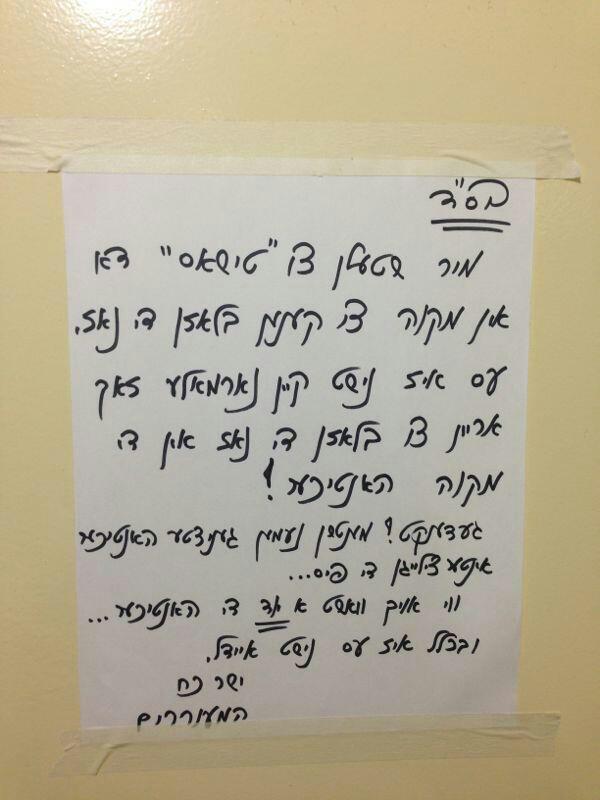 בס"ד
מיר שטעלן צו "טישאס" דא
אין מקוה צו קענען בלאזן די נאז.
עס איז נישט קיין נארמאלע זאך
אריין צו בלאזן די נאז אין די
מקוה האנטיכער!
געדענקט! מענטשן נעמען גענידטע האנטיכער
אינטערצולייגן די פיס...
ווי אויך וואשט א יוד די האנטיכער...
ובכלל איז עס נישט איידל.
ישר כח
המעוררים